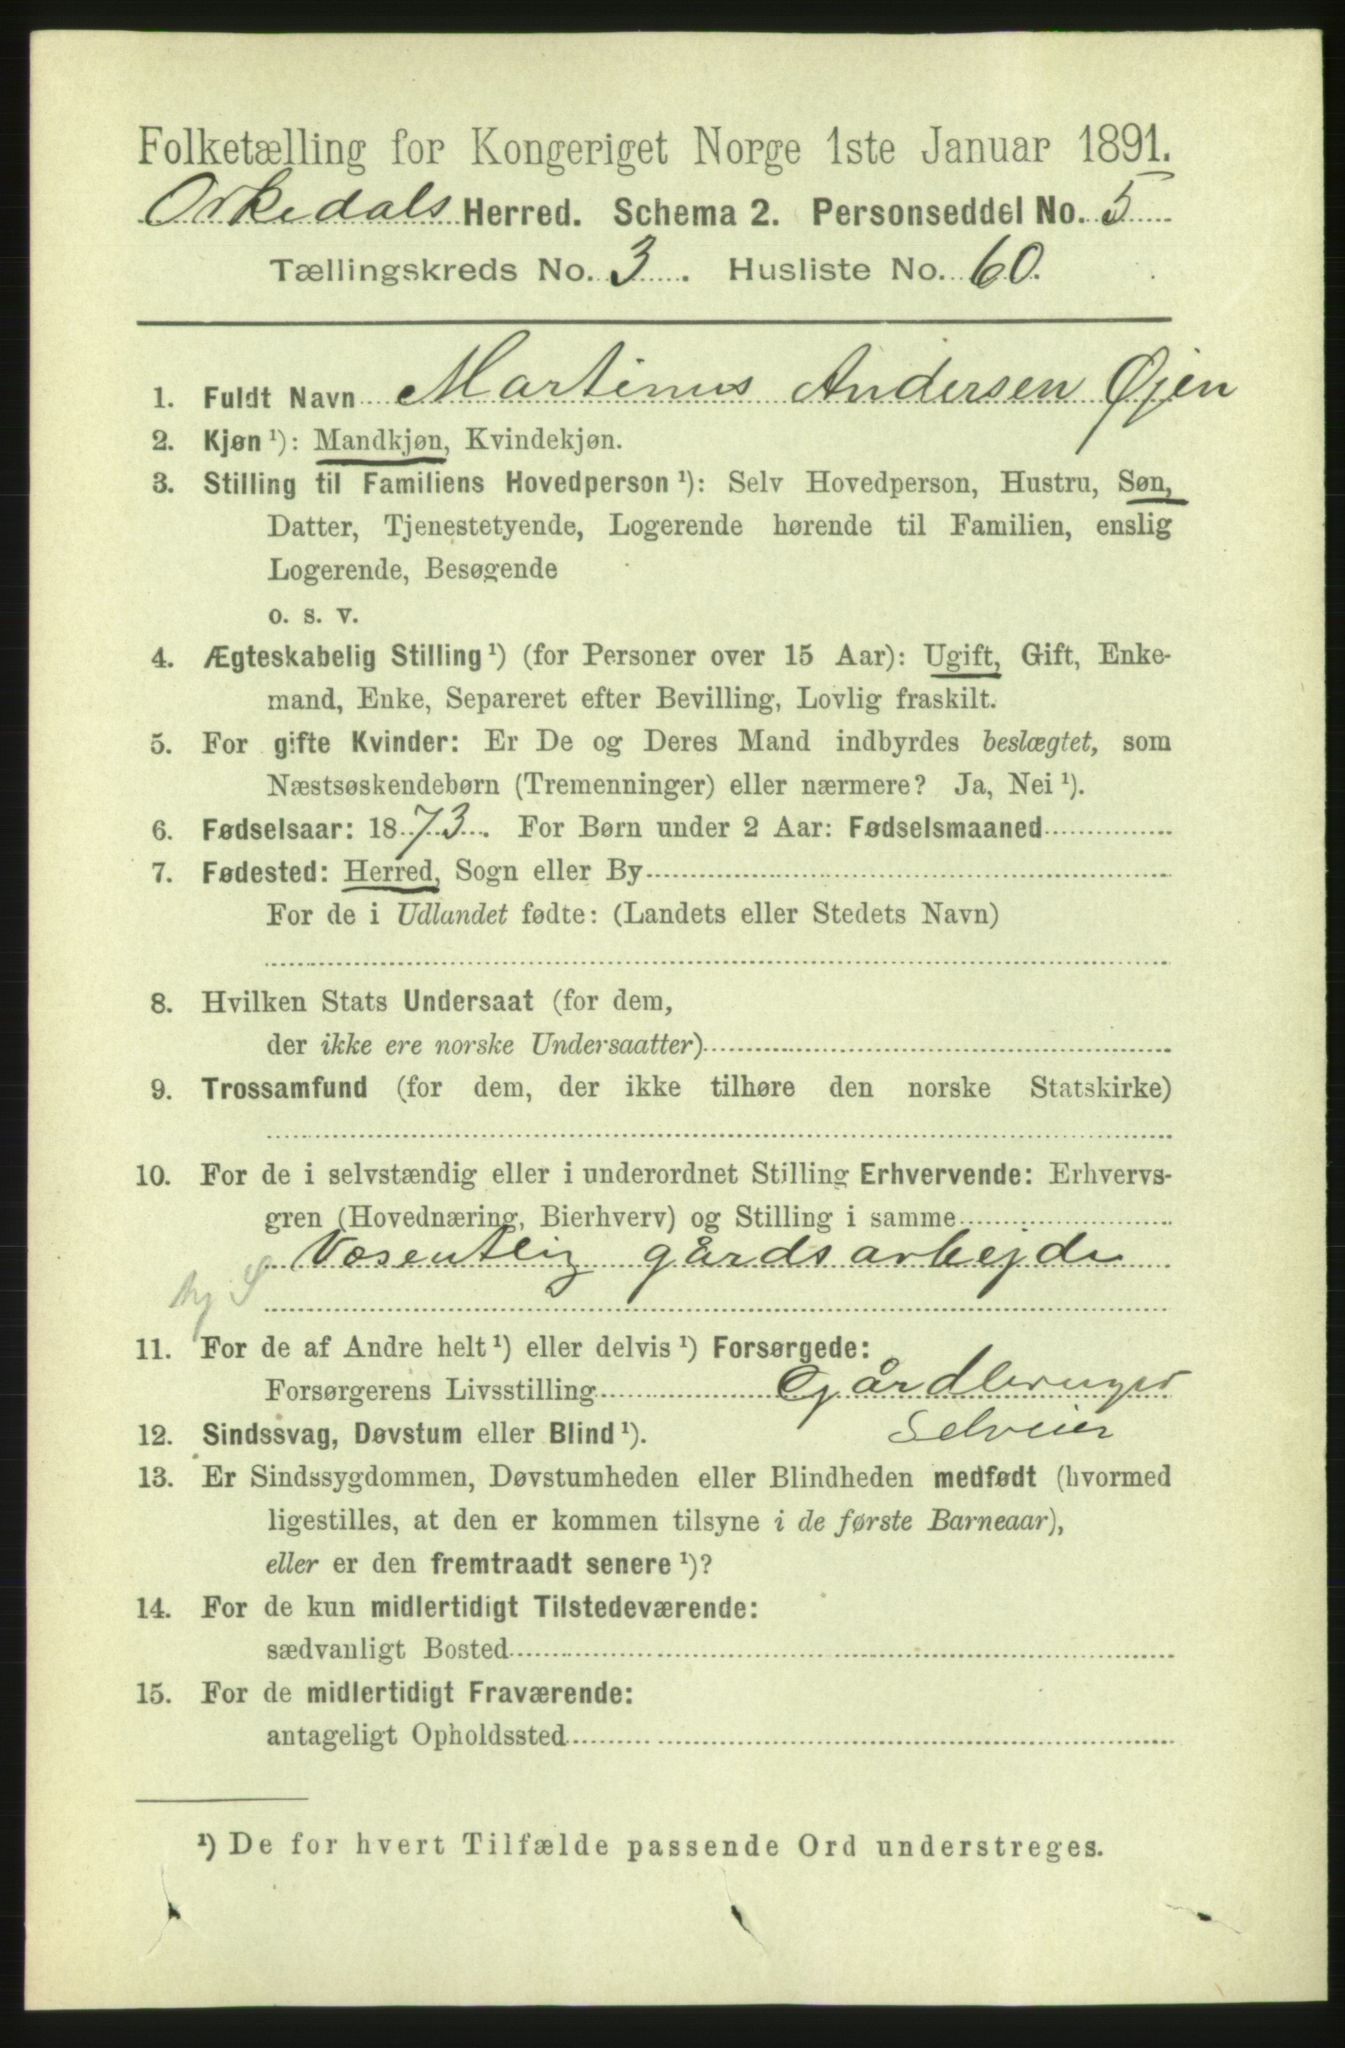 Folketælling for Kongeriget Norge 1ste Januar 1891.
Orkedals Herred. Schema 2. Personseddel No. 5
Tællingskreds No. 3. Husliste No. 60.
1. Fuldt Navn Martinus Andersen Øjen
2. Kjøn ¹): Mandkjøn, Kvindekjøn.
3. Stilling til Familiens Hovedperson ¹): Selv Hovedperson, Hustru, Søn,
Datter, Tjenestetyende, Logerende hørende til Familien, enslig
Logerende, Besøgende
o. s. v.
4. Ægteskabelig Stilling ¹) (for Personer over 15 Aar): Ugift, Gift, Enke-
mand, Enke, Separeret efter Bevilling, Lovlig fraskilt.
5. For gifte Kvinder: Er De og Deres Mand indbyrdes beslægtet, som
Næstsøskendebørn (Tremenninger) eller nærmere? Ja, Nei ¹).
6. Fødselsaar: 1873. For Børn under 2 Aar: Fødselsmaaned
7. Fødested: Herred, Sogn eller By
For de i Udlandet fødte: (Landets eller Stedets Navn)
8. Hvilken Stats Undersaat (for dem,
der ikke ere norske Undersaatter)
9. Trossamfund (for dem, der ikke tilhøre den norske Statskirke)
10. For de i selvstændig eller i underordnet Stilling Erhvervende: Erhvervs-
gren (Hovednæring, Bierhverv) og Stilling i samme
Væsentlig gårdsarbejde
11. For de af Andre helt ¹) eller delvis ¹) Forsørgede:
Forsørgerens Livsstilling Gårdbruger
12. Sindssvag, Døvstum eller Blind ¹). Selveier
13. Er Sindssygdommen, Døvstumheden eller Blindheden medfødt (hvormed
ligestilles, at den er kommen tilsyne i de første Barneaar),
eller er den fremtraadt senere ¹)?
14. For de kun midlertidigt Tilstedeværende:
sædvanligt Bosted
15. For de midlertidigt Fraværende:
antageligt Opholdssted
¹) De for hvert Tilfælde passende Ord understreges.